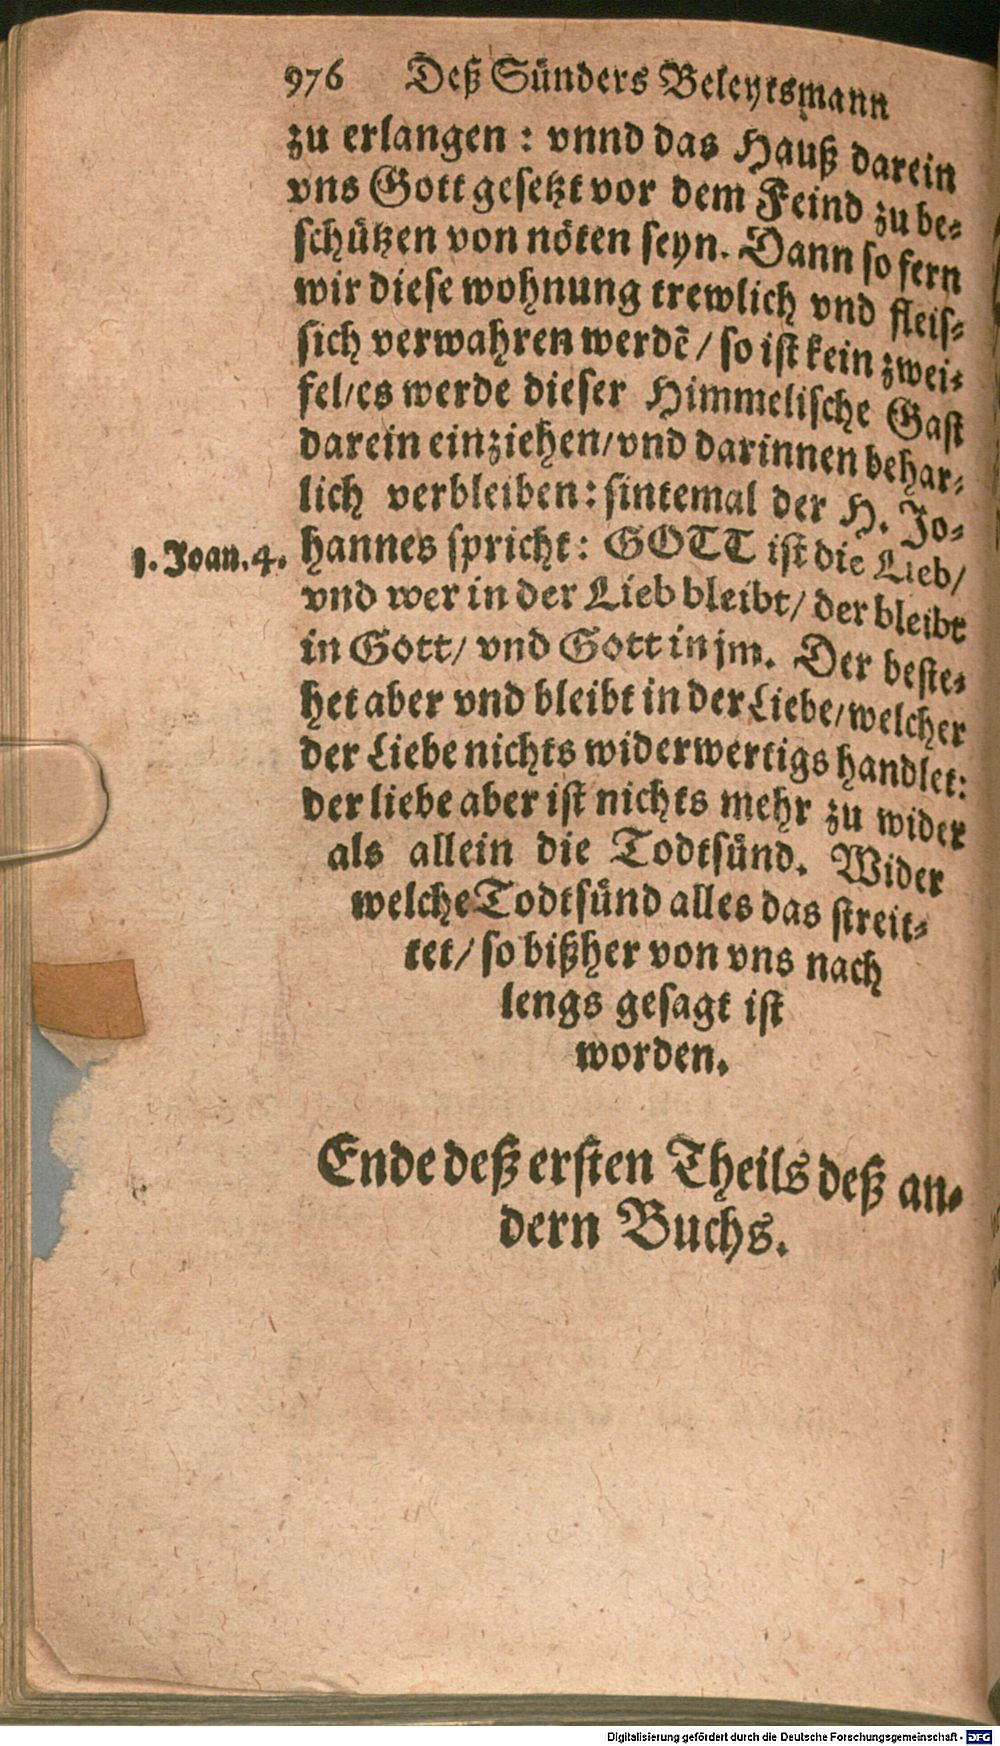 976 Deß Sünders Beleytsmann
zu erlangen: vnnd das Hauß darein
vns Gott gesetzt vor dem Feind zu be-
schützen von nöten seyn. Dann so fern
wir diese wohnung trewlich vnd fleis-
sich verwahren werdē/ so ist kein zwei-
fel/es werde dieser Himmelische Gast
darein einziehen/vnd darinnen behar-
lich verbleiben: sintemal der H. Jo-
1. Joan. 4. hannes spricht: GOTT ist die Lieb/
vnd wer in der Lieb bleibt/ der bleibt
in Gott/ vnd Gott in jm. Der beste-
het aber vnd bleibt in der Liebe/welcher
der Liebe nichts widerwertigs handlet:
der liebe aber ist nichts mehr zu wider
als allein die Todtsünd. Wider
welche Todtsünd alles das streit-
tet/ so bißher von vns nach
lengs gesagt ist
worden.
Ende deß ersten Theils deß an-
dern Buchs.
Digitalisierung gefördert durch die Deutsche Forschungsgemeinschaft - DFG